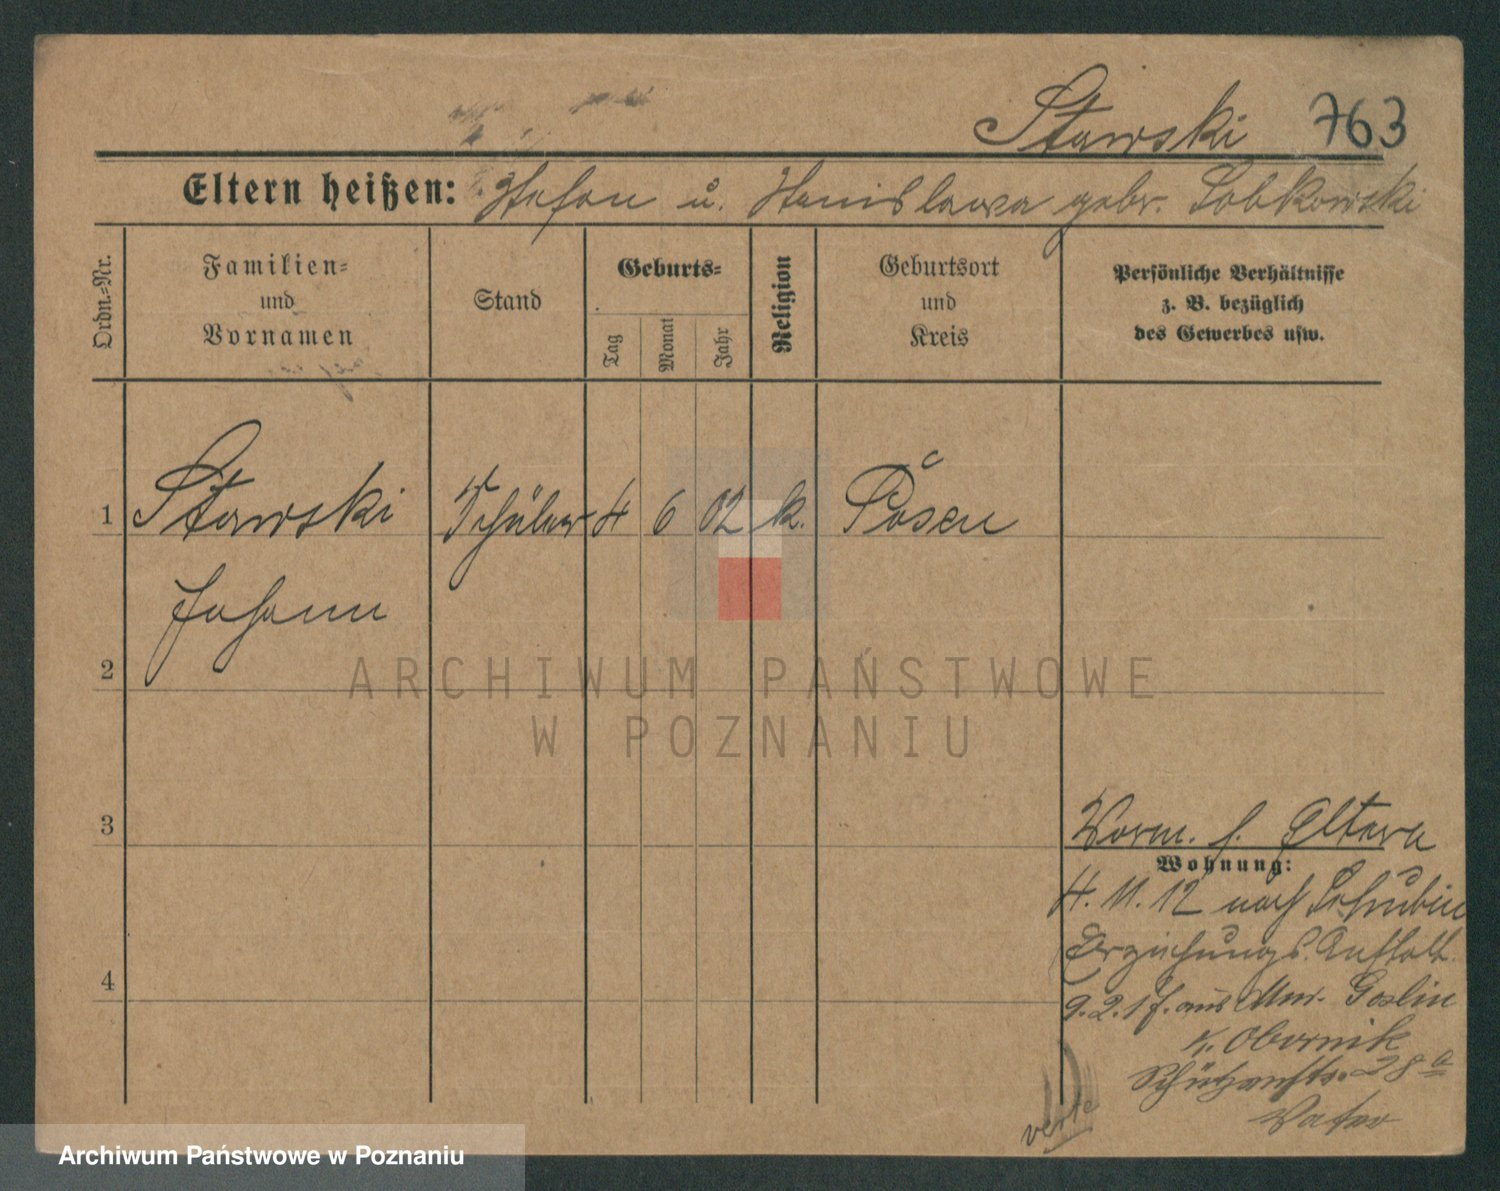 Stawski 763
Eltern heißen: Stefan u. Stanislawa gebor. Sobkowski
Ordn.-Nr.
Familien-
und
Vornamen
Stand
Geburts-
Tag
Monat
Jahr
Religion
Geburtsort
und
Kreis
Persönliche Verhältnisse
z. B. bezüglich
des Gewerbes usw.
1 Stawski Schüler 4 6 02 k. Posen
Johann
2
3
4
Vorm. s. Eltern
Wohnung:
4. 11. 12 nach Schubin
Erziehungs. Anstalt.
9. 2. 17. aus Mur. Goslin
Kr. Obornik
Schützenstr. 28 a
Vater
verte
ARCHIWUM PAŃSTWOWE
W POZNANIU
Archiwum Państwowe w Poznaniu